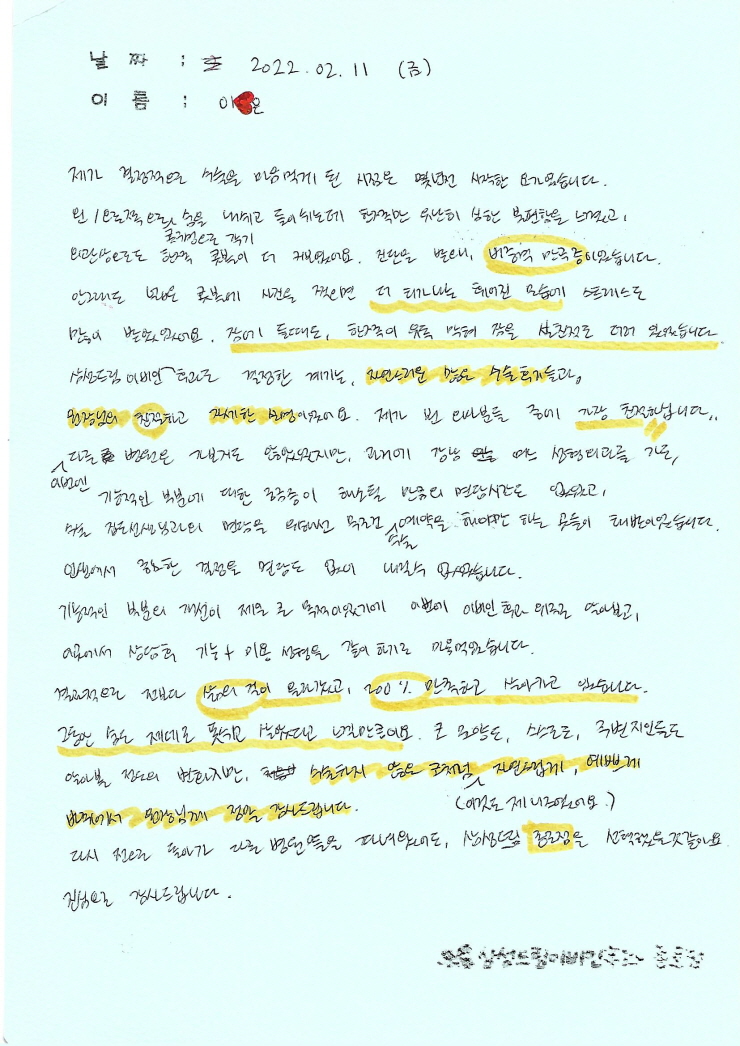 날 짜 : 2022.02.11 (금)
이 름 : 이 은
제가 결정적으로 수술을 마음먹게 된 시점은 몇년전 시작한 요가였습니다.
숨을 내쉬고 들이쉬는데 한쪽만 유난히 심한 불편함을 느꼈고,
외관상으로도 한쪽 콧볼이 더 커보였어요. 진단을 받으니, 비중격 만곡증이었습니다.
안그래도 콧볼에 사진을 찍으면 더 티가나는 휘어진 모습에 스트레스도
많이 받았었어요. 잠에 들때도, 한쪽이 우뚝 막혀 잠을 설친적도 더러 있었습니다
삼성드림이비인후과로 결정한 계기는, 자연스러운 많은 수술후기들과,
원장님의 친절하고 자세한 설명이었어요. 제가 본 의사분들 중에 가장 친절하십니다..
이번엔 다른 병원은 가보지도 않았었지만, 과거에 강남 성형외과를 가도,
기능적인 부분에 대한 궁금증이 해소될 만큼의 면담시간도 없었고,
수술 집도선생님과의 면담을 위해선 무조건 수술 예약을 해야만 하는 곳들이 태반이었습니다.
인생에서 중요한 결정을 면담도 없이 내릴수 없었습니다.
기능적인 부분의 개선이 제일 큰 목적이었기에 이번에 이비인후과 위주로 알아보고,
이곳에서 상담후 기능+미용 성형을 같이 하기로 마음먹었습니다.
결과적으로 전보다 삶의 질이 올라갔고, 200% 만족하고 살아가고 있습니다.
그동안 숨도 제대로 못쉬고 살았다고 느낄만큼이요. 코 모양도, 스스로도, 주변지인들도
알아볼 정도의 변화지만, 수술하지 않은 코처럼 자연스럽게, 예쁘게
바꿔주셔서 원장님께 정말 감사드립니다. (이것도 제 니즈였어요.)
다시 전으로 돌아가 다른 병원들을 다녀왔어도, 삼성드림 을 선택했을것같아요
진심으로 감사드립니다.
삼성드림이비인후과